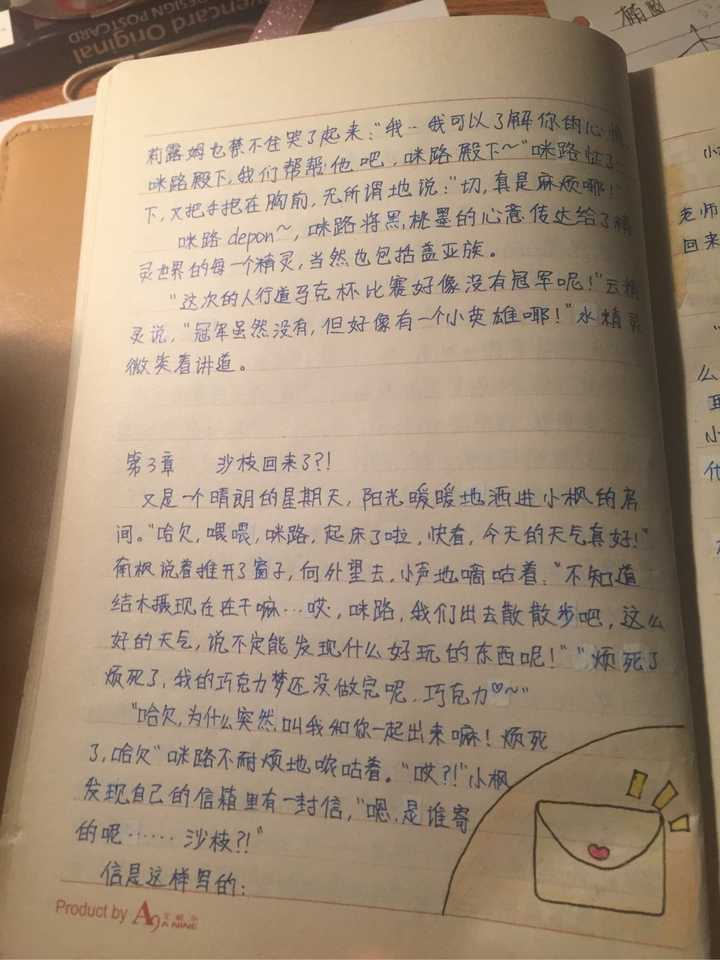 vencard Original
DESIGN POSTCARD
椭圆
莉露姆也禁不住哭了起来："我…我可以了解你的心情，
咪路殿下，我们帮帮他吧，咪路殿下~"咪路怔了一
下，又把手把在胸前，无所谓地说："切，真是麻烦哪！"
咪路depon~，咪路将黑桃墨的心意传达给了精
灵世界的每一个精灵，当然也包括盖亚族。
"这次的人行道马克杯比赛好像没有冠军呢！"云精
灵说，"冠军虽然没有，但好像有一个小英雄哪！"水精灵
微笑着讲道。
第3章 沙枝回来了?!
又是一个晴朗的星期天，阳光暖暖地洒进小枫的房
间。"哈欠，喂喂，咪路，起床了啦，快看，今天的天气真好！"
南枫说着推开了窗子，向外望去，小声地嘀咕着："不知道
结木摄现在在干嘛…哎，咪路，我们出去散散步吧，这么
好的天气，说不定能发现什么好玩的东西呢！""烦死了
烦死了，我的巧克力梦还没做完呢，巧克力♡~"
"哈欠，为什么突然叫我和你一起出来嘛！烦死
了，哈欠"咪路不耐烦地哝咕着。"哎?!"小枫
发现自己的信箱里有一封信，"嗯，是谁寄
的呢……沙枝?!"
信是这样写的：
Product by A9
A NINE
老师
回来
么